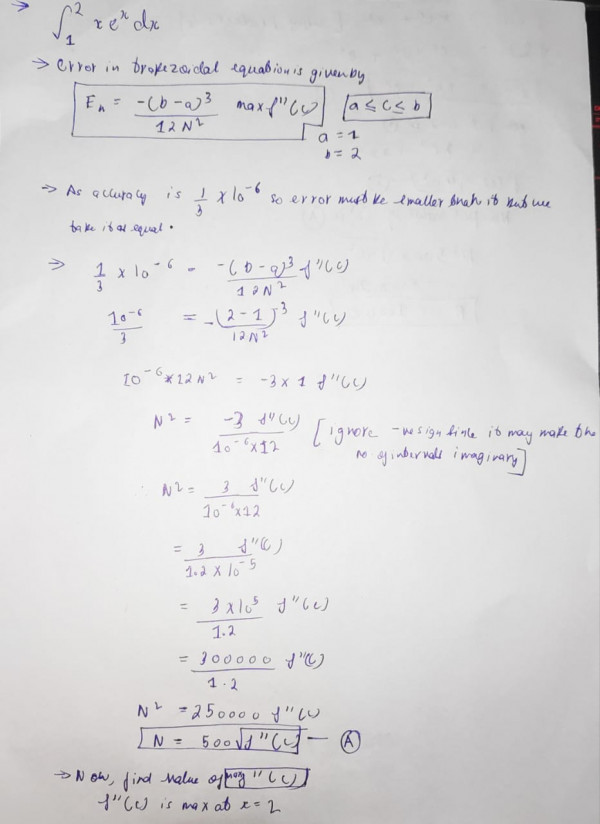 → ∫₁² x eˣ dx
→ Error in trapezoidal equation is given by
Eₙ = -(b-a)³ / 12N² max f''(c) a ≤ c ≤ b
a = 1
b = 2
→ As accuracy is 1/3 × 10⁻⁶ so error must be smaller than it but we
take it as equal.
→ 1/3 × 10⁻⁶ = -(b-a)³ / 12N² f''(c)
10⁻⁶/3 = -(2-1)³ / 12N² f''(c)
10⁻⁶ × 12N² = -3 × 1 f''(c)
N² = -3 f''(c) / 10⁻⁶×12 [ignore -ve sign it may make the
no of intervals imaginary]
N² = 3 f''(c) / 10⁻⁶×12
= 3 f''(c) / 1.2 × 10⁻⁵
= 3×10⁵ / 1.2 f''(c)
= 300000 / 1.2 f''(c)
N² = 250000 f''(c)
N = 500√f''(c) — (A)
→ Now, find value of max f''(c)
f''(c) is max at x = 2